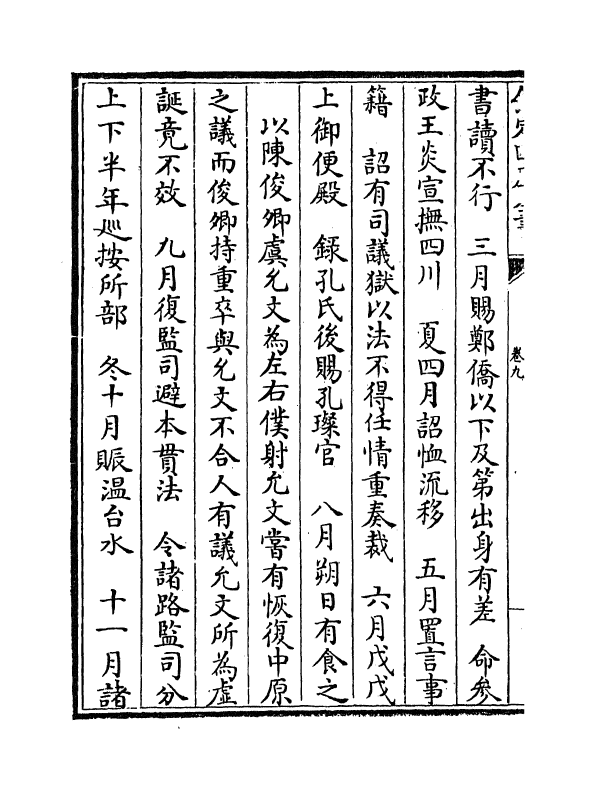 卷九
書讀不行　三月賜鄭僑以下及第出身有差　命參
政王炎宣撫四川　夏四月詔恤流移　五月置言事
籍　詔有司議獄以法不得任情重奏裁　六月戊戌
上御便殿　録孔氏後賜孔璨官　八月朔日有食之
以陳俊卿虞允文為左右僕射允文嘗有恢復中原
之議而俊卿持重卒與允文不合人有議允文所為虛
誕竟不效　九月復監司避本貫法　令諸路監司分
上下半年廵按所部　冬十月賑温台水　十一月諸